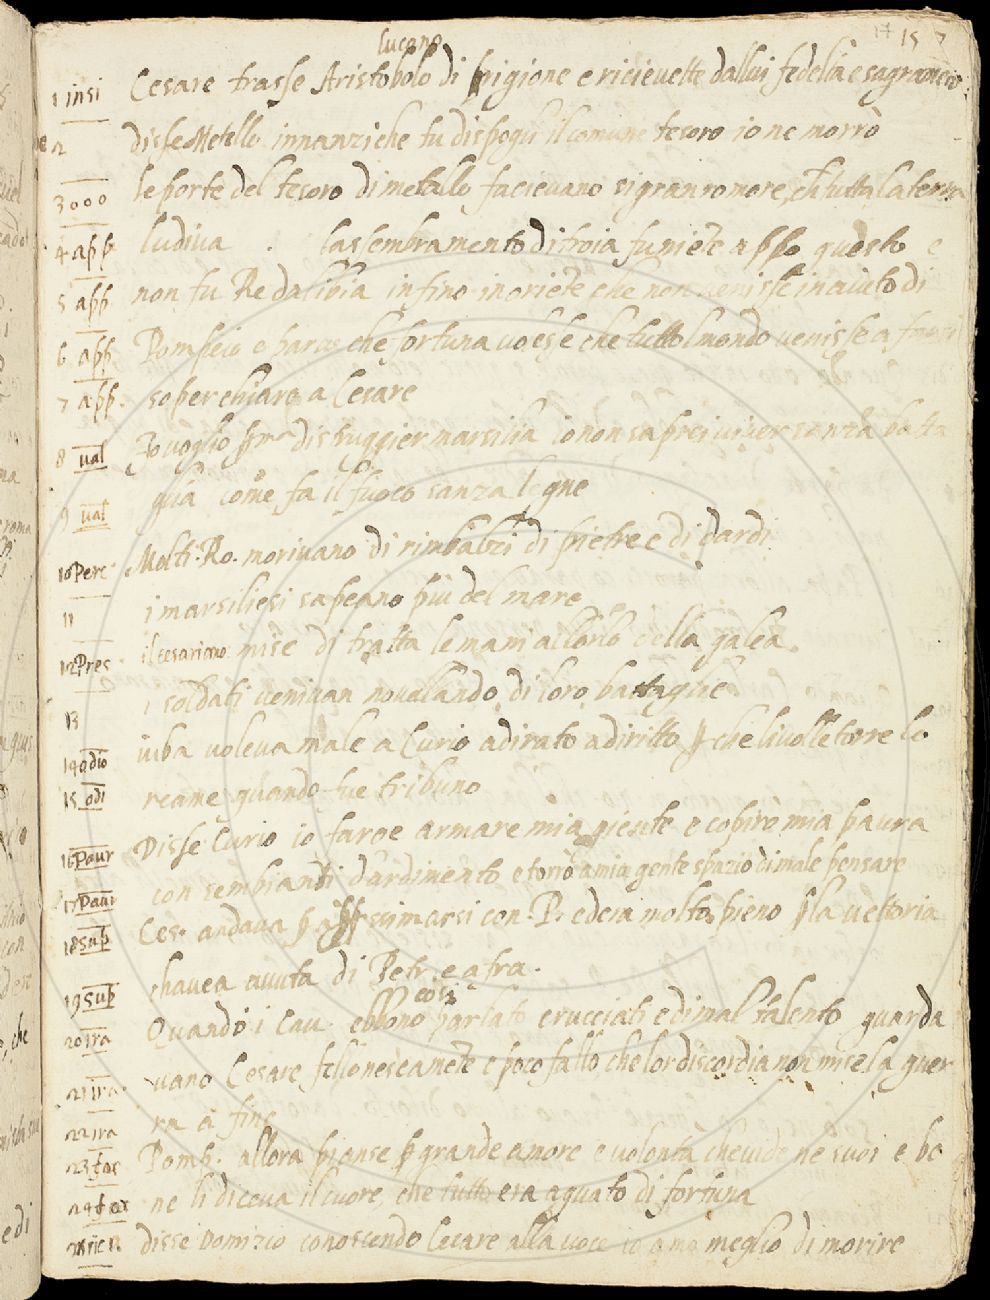 17 15 7
lucano
Cesare trasse Aristobolo di prigione e ricievette dallui fedelta e sagramēto
disse Metello innanzi che tu dispogli il comune tesoro io ne morrò
le porte del tesoro di metallo facievano si gran romore, che tutta la terra
ludiva . lassembramento di troia fu niēte appo questo e
non fu Re da libia infino in oriēte che non venisse in aiuto di
Pompeio e parve che fortuna volesse che tutto lmondo venisse a farsi
soperchiare a Cesare
Io voglio prᵃ distruggier marsilia io non saprei viver sanza batta
glia come fa il fuoco sanza legne
Molti Ro. morivano di rimbalzi di pietre e di dardi
i marsiliesi sapeano piu del mare
il cesariano mise di tratta le mani allorlo della galea
i soldati venivan novelando di loro battaglie
iuba voleva male a Curio adirato a diritto p che li volle torre lo
reame quando fue tribuno
Disse Curio io faroe armare mia giente e cobiro mia paura
con sembianti d'ardimento e torrò a mia gente spazio di male pensare
Ces. andava p appssimarsi con P. ed era molto pieno p la vettoria
chavea avuta di Petr. e afra.
così
Quando i Cav. ebbono parlato crucciati e di mal talento guarda
vano Cesare fellonescamēte e poco fallo che lor discordia non mise la guer
ra a fine
Pomp. allora pianse p grande amore e volonta che vide ne suoi e be
ne li diceva il cuore, che tutto era aguato di fortuna
disse Domizio conoscendo Cesare alla voce io amo meglio di morire
1 insi
2
3 000
4 app
5 app
6 app
7 app.
8 val
9 val
10 Perc
11
12 Pres
13
14 odio
15 odi
16 Paur
17 Paur
18 Sup
19 Sup
20 ira
21 ira
22 ira
23 for
24 for